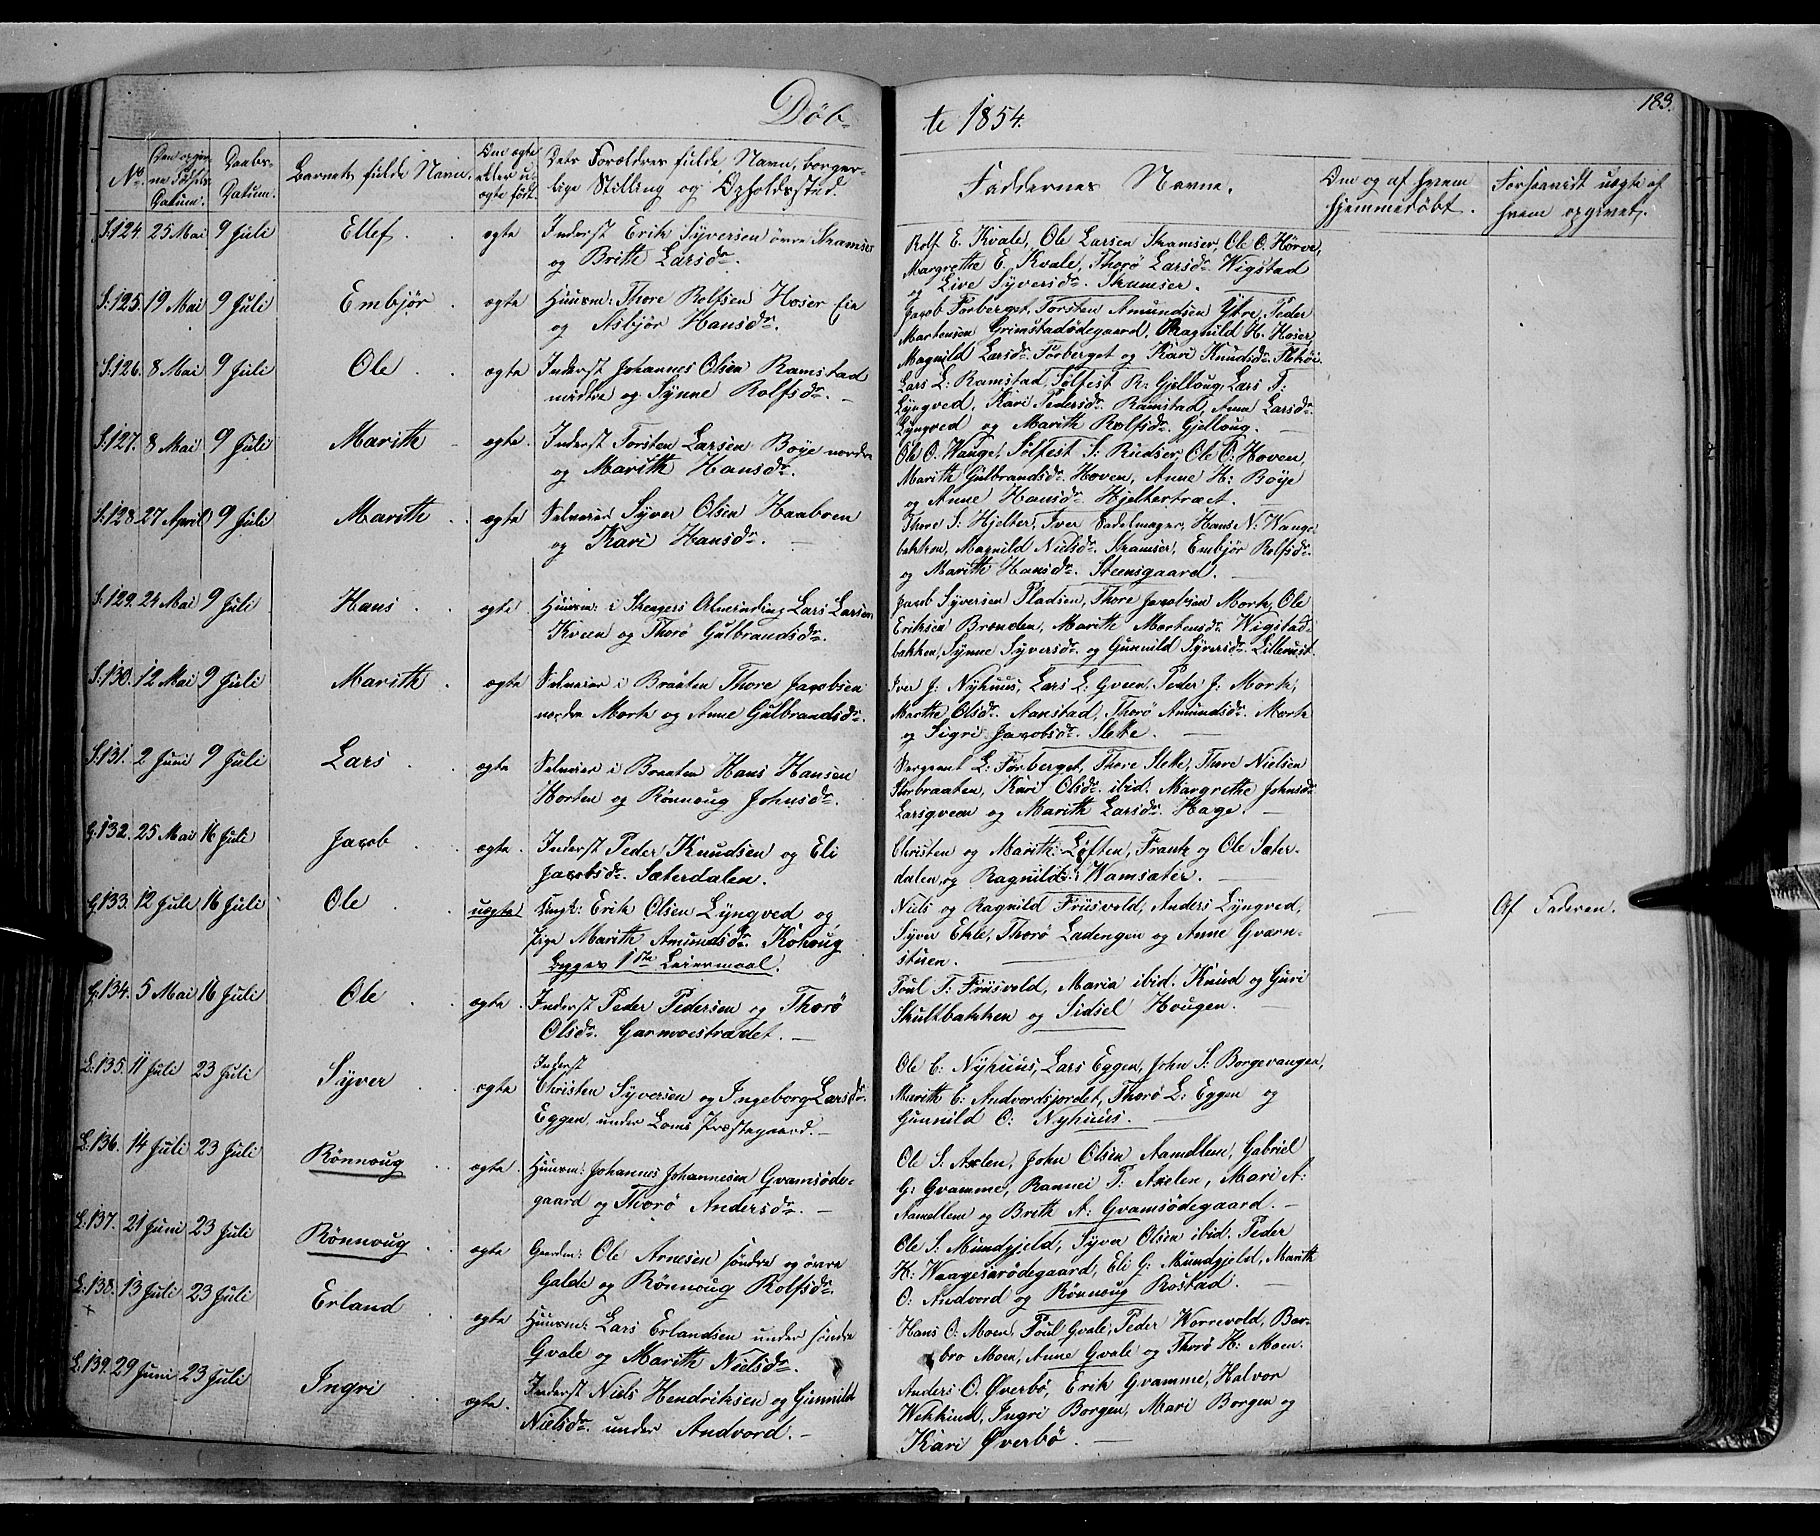 Døb-
te 1854.
183.
No.
Den opgiv-
ne Fødsels
Datum.
Daabs-
Datum.
Barnets fulde Navn.
Om ægte
eller u-
ægte født.
Dets Forældres fulde Navn, borger-
lige Stilling og Opholdssted.
Faddernes Navne.
Om og af hvem
hjemmedøbt.
Forsaavidt uægte af
hvem opgivet.
S.124. 25 Mai 9 Juli Ellef. ægte Inderst Erik Syversen övre Skamser
og Brith Larsdr.
Rolf E. Kvale, Ole Larsen Skamser, Ole O. Hörve,
Margrethe E. Kvale, Thorö Larsdr. Wigstad
og Live Syversdr. Skamser.
S.125. 19 Mai 9 Juli Embjör ægte Huusm: Thore Rolfsen Hoser Eie
og Asbjör Hansdr.
Jacob Forberget, Torsten Amundsen Ytre, Peder
Mortensen Grimstadödegaard, Ragnild H. Hoser,
Magnild Larsdr. Forberget og Kari Knudsdr.
S.126. 8 Mai 9 Juli Ole ægte Inderst Johannes Olsen Ramstad
midtre og Synne Rolfsdr.
Lars L: Ramstad, Sölfest R: Gjelloug, Lars T:
Lyngved, Kari Pedersdr. Ramstad, Anne Larsdr.
Lyngved og Marith Rolfsdr. Gjelloug.
S.127. 8 Mai 9 Juli Marith ægte Inderst Torsten Larsen Böye nordre
og Marith Hansdr.
Ole O. Wange, Sölfest S: Rudser, Ole O: Hoven,
Marith Gulbrandsdr. Hoven, Anne H: Böye
og Anne Hansdr. Hjeltertræet.
S.128. 27 April 9 Juli Marith ægte Selveier Syver Olsen Haaboen
og Kari Hansdr.
Thore S: Hjelter, Iver Sadelmager, Hans N: Wange-
bakken, Magnild Nielsdr. Skamser, Embjör Rolfsdr.
og Marith Hansdr. Steensgaard.
S.129. 24 Mai 9 Juli Hans ægte Huusm: i Skengers Almending Lars Larsen
Kveen og Thorö Gulbrandsdr.
Jacob Syversen Pladsen, Thore Jacobsen Mork, Ole
Eriksen Brænden, Marith Mortensdr. Wigstad-
bakken, Synne Syversdr. og Gunnild Syversdr.
S.130. 12 Mai 9 Juli Marith ægte Selveier i Braaten Thore Jacobsen
nordre Mork og Anne Gulbrandsdr.
Iver J: Nyhuus, Lars L: Gveen, Peder J: Mork,
Marthe Olsdr. Aanstad, Thorö Amundsdr. Mork
og Sigri Jacobsdr. Slette.
S.131. 2 Juni 9 Juli Lars ægte Selveier i Braaten Hans Hansen
Horten og Rönnoug Johnsdr.
Sergeant L: Forberget, Thore Slette, Thore Nielsen
Storbraaten, Kari Olsdr. ibid. Margrethe Johnsdr.
Larsgveen og Marith Larsdr. Hage.
G.132. 25 Mai 16 Juli Jacob ægte Inderst Peder Knudsen og Eli
Jacobsdr. Sæterdalen.
Christen og Marith Löften, Frantz og Ole Sæter-
dalen, og Ragnild Wamsæter.
G.133. 12 Juli 16 Juli Ole uægte Ungk: Erik Olsen Lyngved og
Pige Marith Amundsdr. Kohoug
Begges 1ste Leiermaal.
Niels og Ragnild Früsvold, Anders Lyngved,
Syver Ekle, Thorö Ladengen og Anne Gvern-
stuen.
Af Faderen.
G.134. 5 Mai 16 Juli Ole ægte Inderst Peder Pedersen og Thorö
Olsdr. Garmoestrædet.
Poul T: Früsvold, Maria ibid. Knud og Guri
Skultbakken og Sidsel Hougen.
L.135. 11 Juli 23 Juli Syver ægte Inderst
Christen Syversen og Ingeborg Larsdr.
Eggen, under Loms Præstegaard.
Ole C: Nyhuus, Lars Eggen, John S: Borgevangen,
Marith C: Andvordsjordet, Thorö L: Eggen og
Gunnild O: Nyhuus.
L.136. 14 Juli 23 Juli Rönnoug ægte Huusm: Johannes Johannesen Gvamsöde-
gaard og Thorö Andersdr.
Ole S: Axelen, John Olsen Aamellem, Gabriel
G: Gvamme, Rannei T: Axelen, Mari A:
Aamellem og Brith A: Gvamsödegaard.
L.137. 21 Juni 23 Juli Rönnoug ægte Gaardm: Ole Arnesen söndre og övre
Galde og Rönnoug Rolfsdr.
Ole S: Mundgjeld, Syver Olsen ibid. Peder
H: Waagesarödegaard, Eli G: Mundgjeld, Marith
O: Andvord og Rönnoug Rostad.
L.138. 13 Juli 23 Juli Erland ægte Huusm: Lars Erlandsen under söndre
Gvale og Marith Nielsdr.
Hans O: Moen, Poul Gvale, Peder Worrevold, Bar-
bro Moen, Anne Gvale og Thorö H: Moen.
L.139. 29 Juni 23 Juli Ingri ægte Inderst Niels Hendriksen og Gunnild
Nielsdr. under Andvord.
Anders O. Överbö, Erik Gvamme, Halvor
Wekkind, Ingri Borgen, Mari Borgen og
Kari Överbö.